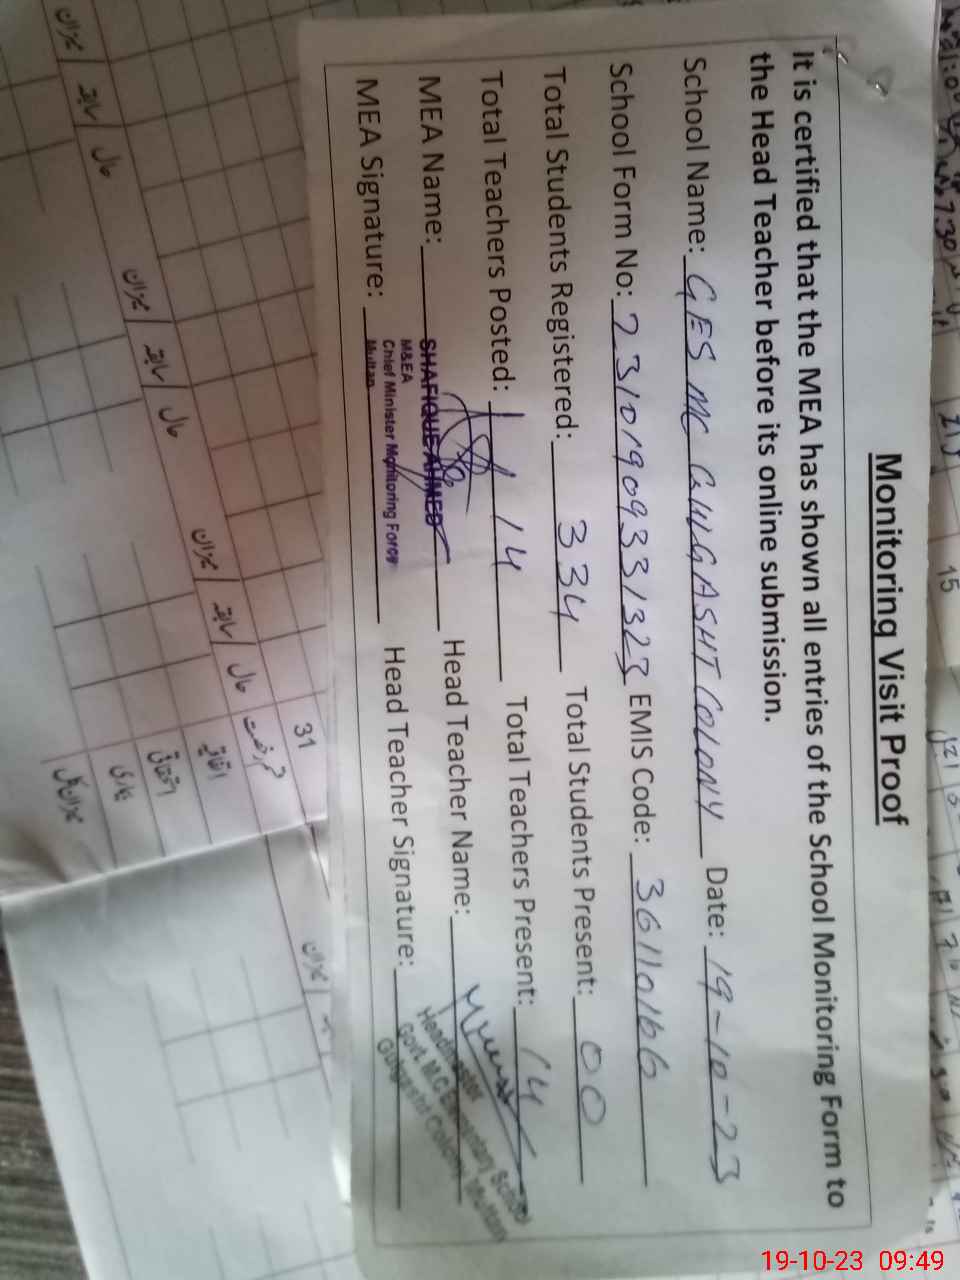 Monitoring Visit Proof
It is certified that the MEA has shown all entries of the School Monitoring Form to
the Head Teacher before its online submission.
School Name: GES MC GULGASHT COLONY Date: 19-10-23
School Form No: 23101909331323 EMIS Code: 36110166
Total Students Registered: 334 Total Students Present: 00
Total Teachers Posted: 14 Total Teachers Present: 14
MEA Name: SHAFIQUE AHMED Head Teacher Name:
M&EA
Chief Minister Monitoring Force
Multan
MEA Signature: Head Teacher Signature:
Headmaster
Govt. M.C Elementary School
Gulgasht Colony, Multan
15
31
حال
سابقہ
میزان
حال
سابقہ
میزان
حال
سابقہ
میزان
رخصت
اتفاقیہ
استحقاقی
بیماری
میزان کل
19-10-23 09:49